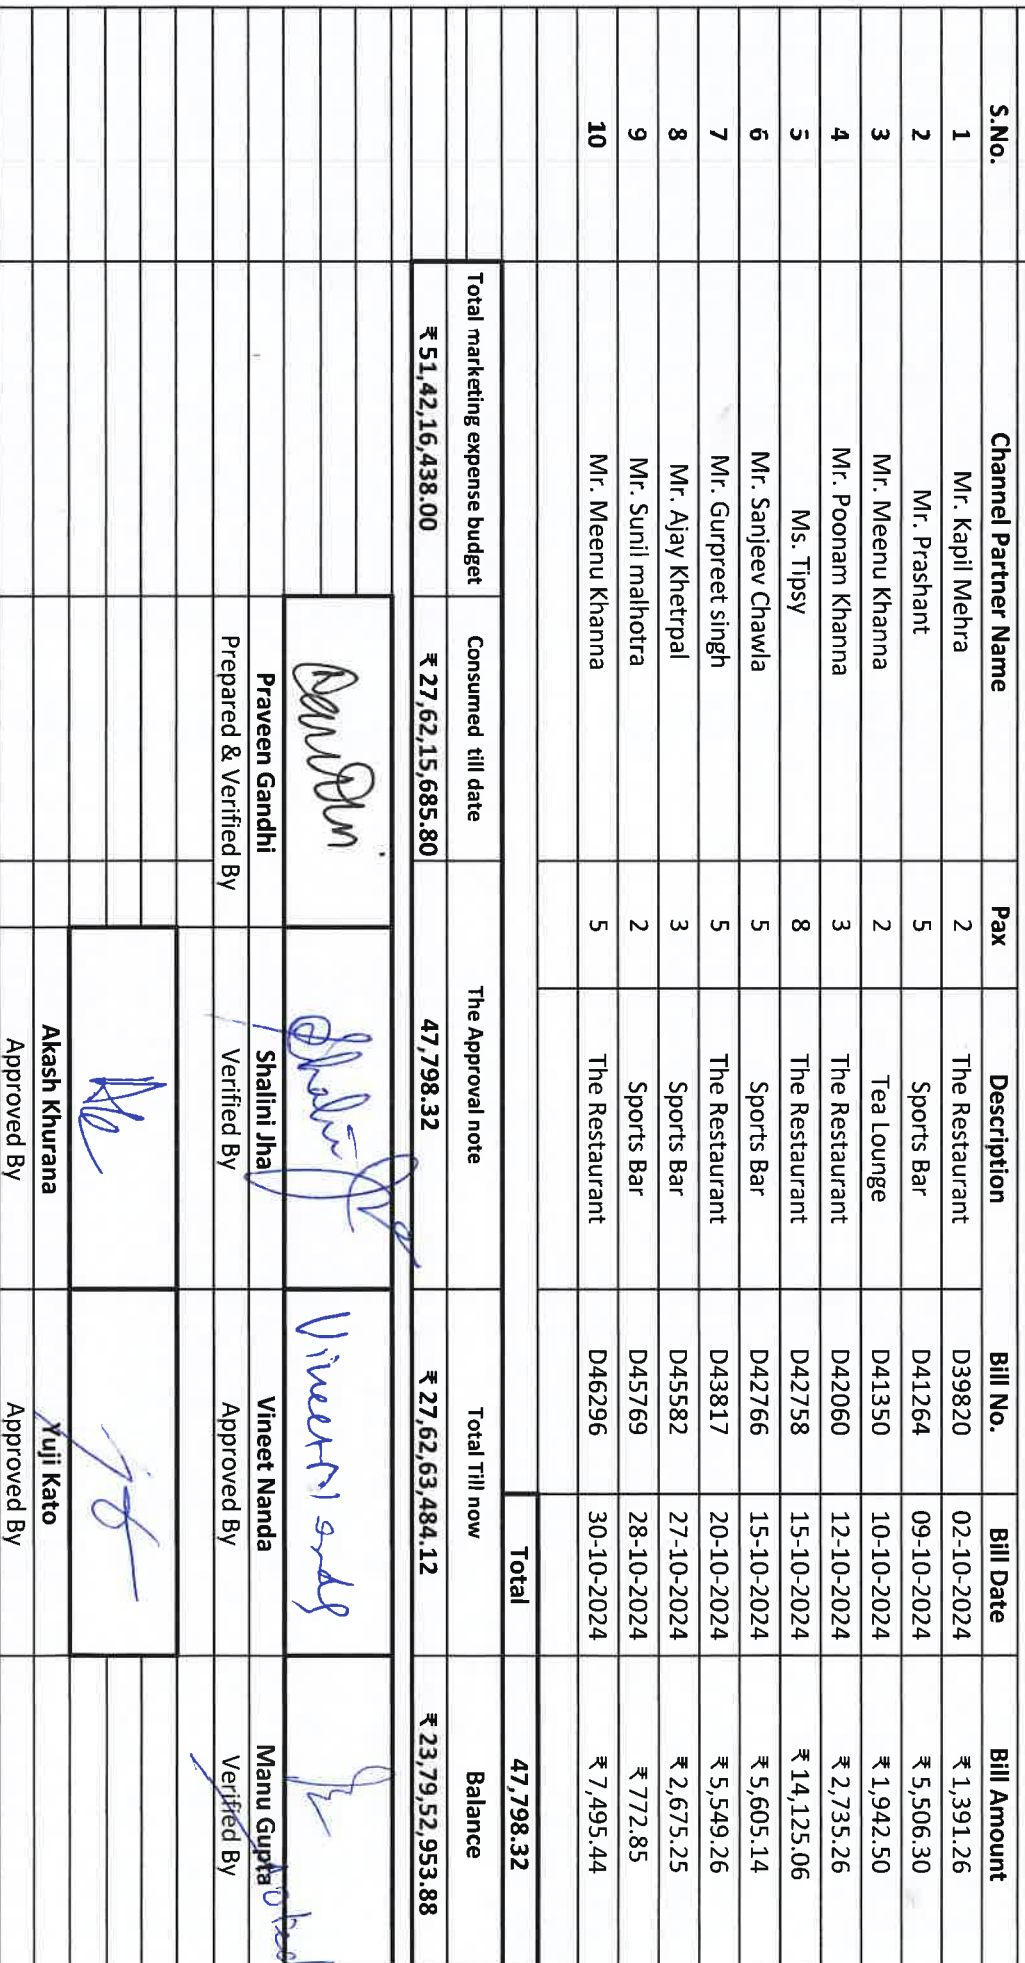 S.No. Channel Partner Name Pax Description Bill No. Bill Date Bill Amount
1 Mr. Kapil Mehra 2 The Restaurant D39820 02-10-2024 ₹ 1,391.26
2 Mr. Prashant 5 Sports Bar D41264 09-10-2024 ₹ 5,506.30
3 Mr. Meenu Khanna 2 Tea Lounge D41350 10-10-2024 ₹ 1,942.50
4 Mr. Poonam Khanna 3 The Restaurant D42060 12-10-2024 ₹ 2,735.26
5 Ms. Tipsy 8 The Restaurant D42758 15-10-2024 ₹ 14,125.06
6 Mr. Sanjeev Chawla 5 Sports Bar D42766 15-10-2024 ₹ 5,605.14
7 Mr. Gurpreet singh 5 The Restaurant D43817 20-10-2024 ₹ 5,549.26
8 Mr. Ajay Khetrpal 3 Sports Bar D45582 27-10-2024 ₹ 2,675.25
9 Mr. Sunil malhotra 2 Sports Bar D45769 28-10-2024 ₹ 772.85
10 Mr. Meenu Khanna 5 The Restaurant D46296 30-10-2024 ₹ 7,495.44
Total 47,798.32
Total marketing expense budget Consumed till date The Approval note Total Till now Balance
₹ 51,42,16,438.00 ₹ 27,62,15,685.80 47,798.32 ₹ 27,62,63,484.12 ₹ 23,79,52,953.88
Praveen Gandhi Shalini Jha Vineet Nanda Manu Gupta
Prepared & Verified By Verified By Approved By Verified By
Akash Khurana Yuji Kato
Approved By Approved By